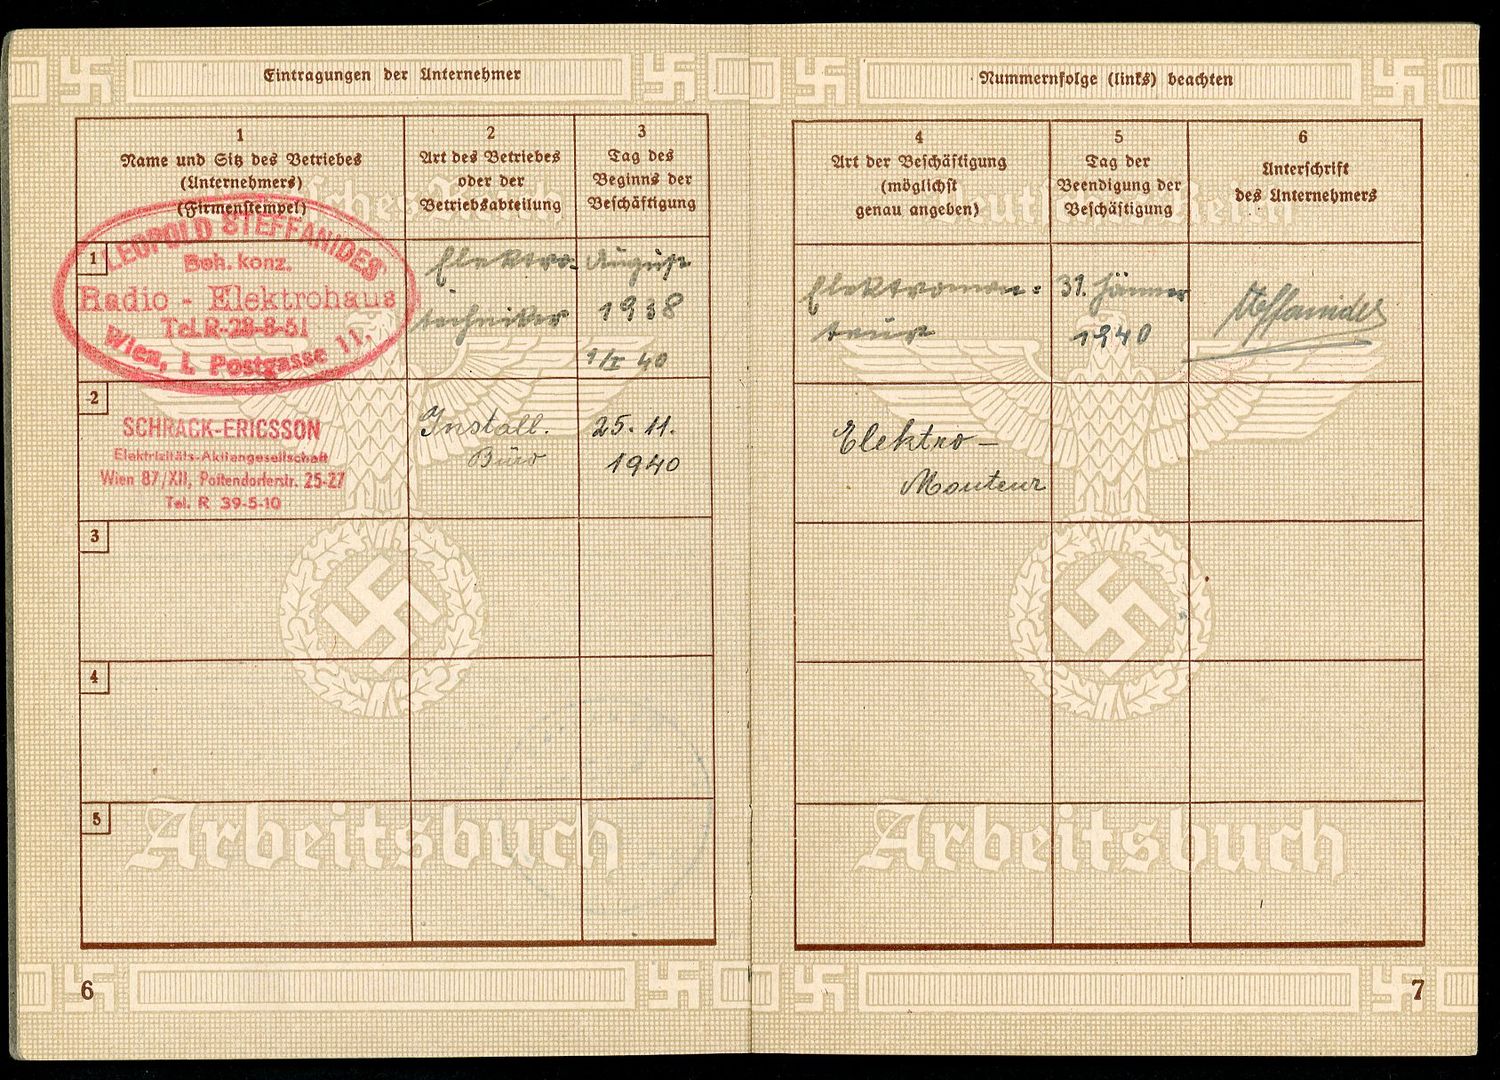 Eintragungen der Unternehmer
1
Name und Sitz des Betriebes
(Unternehmers)
(Firmenstempel)
2
Art des Betriebes
oder der
Betriebsabteilung
3
Tag des
Beginns der
Beschäftigung
1
LEOPOLD STEFFANIDES
Beh. konz.
Radio - Elektrohaus
Tel. R-28-8-51
Wien, I. Postgasse 11.
Elektro-
techniker
August
1938
1/I 40
2
SCHRACK-ERICSSON
Elektrizitäts-Aktiengesellschaft
Wien 87/XII, Pottendorferstr. 25-27
Tel. R 39-5-10
Install.
Büro
25. 11.
1940
3
4
5
Deutsches Reich
Arbeitsbuch
6
Nummernfolge (links) beachten
4
Art der Beschäftigung
(möglichst
genau angeben)
5
Tag der
Beendigung der
Beschäftigung
6
Unterschrift
des Unternehmers
Elektromon-
teur
31. Jänner
1940
Steffanides
Elektro-
Monteur
Deutsches Reich
Arbeitsbuch
7